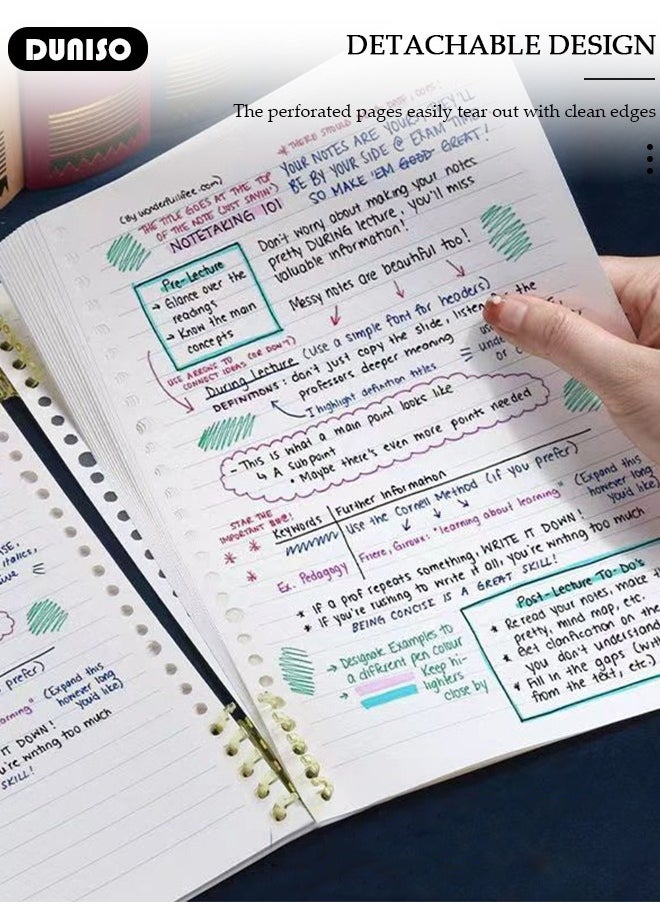 DUNISO
DETACHABLE DESIGN
The perforated pages easily tear out with clean edges
* THERE SHOULD
YOUR NOTES ARE YOURS. THEY'LL
BE BY YOUR SIDE @ EXAM TIME
SO MAKE 'EM GOOD GREAT!
(By wonderfullifee.com)
THE TITLE GOES AT THE TOP
OF THE NOTE (JUST SAYIN')
NOTETAKING 101
Don't worry about making your notes
pretty DURING lecture, you'll miss
valuable information!
Messy notes are beautiful too!
Pre-Lecture
→ Glance over the
readings
→ Know the main
concepts
USE ARROWS TO
CONNECT IDEAS (OR DON'T)
During Lecture (use a simple font for headers)
DEFINITIONS: don't just copy the slide, listen the
professors deeper meaning
I highlight definition titles
- This is what a main point looks like
↳ A subpoint
• Maybe there's even more points needed
STAR THE
IMPORTANT
Keywords
Further Information
Use the Cornell Method (if you prefer)
Ex. Pedagogy
Friere, Giroux: "learning about learning"
(Expand this
however long
you'd like)
* If a prof repeats something, WRITE IT DOWN!
* If you're rushing to write it all, you're writing too much
BEING CONCISE IS A GREAT SKILL!
→ Designate Examples to
a different pen colour
→ Keep hi-
lighters
close by
Post-Lecture To-Do's
* Reread your notes, make
pretty, mind map, etc.
* Get clarification on the
you don't understand
* Fill in the gaps
from the text, etc.)
prefer)
(Expand this
however long
you'd like)
IT DOWN!
u're writing too much
SKILL!